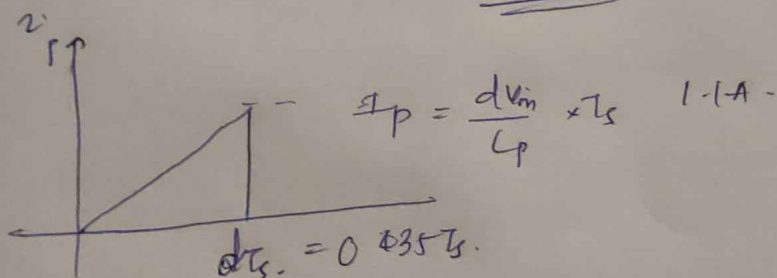 i
P
I_p = dV_in / L_p × T_s 1.1A.
dT_s. = 0.435T_s.